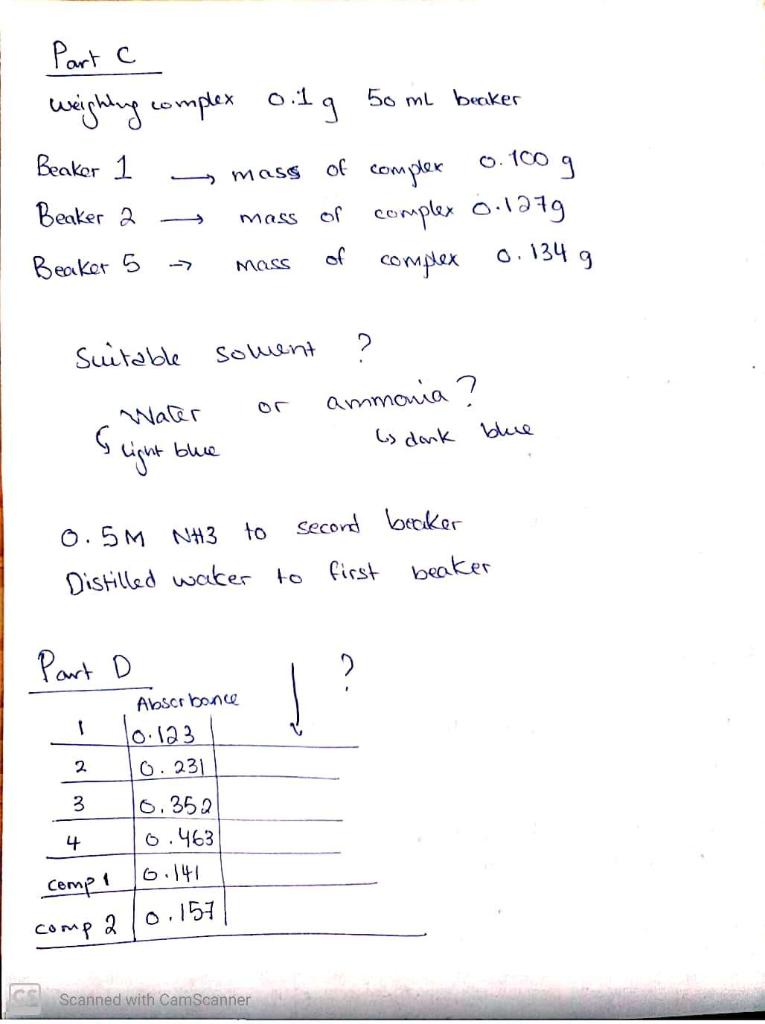 Part C
weighing complex 0.1 g 50 mL beaker
Beaker 1 → mass of complex 0.100 g
Beaker 2 → mass of complex 0.127g
Beaker 5 → mass of complex 0.134 g
Suitable solvent ?
Water or ammonia ?
↳ light blue ↳ dark blue
0.5M NH3 to second beaker
Distilled water to first beaker
Part D ↓ ?
Absorbance
1 0.123
2 0.231
3 0.352
4 0.463
comp 1 0.141
comp 2 0.157
CS Scanned with CamScanner